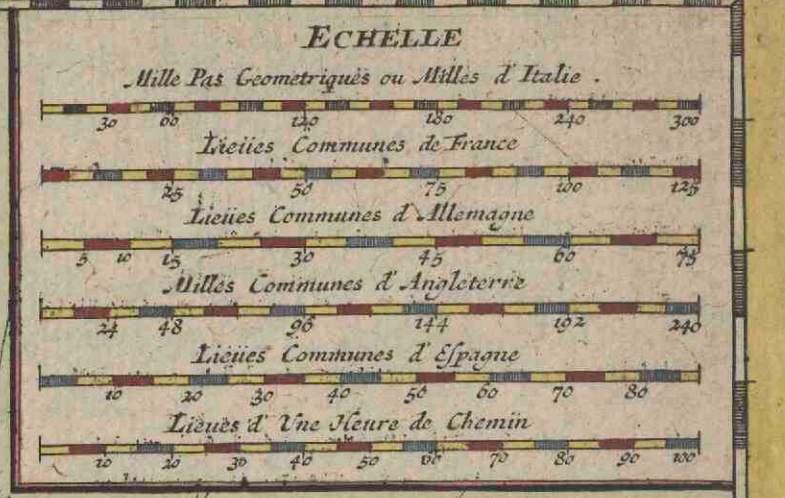 ECHELLE
Mille Pas Geometriques ou Milles d'Italie .
30 60 120 180 240 300
Lieües Communes de France
25 50 75 100 125
Lieües Communes d'Allemagne
5 10 15 30 45 60 75
Milles Communes d'Angleterre
24 48 96 144 192 240
Lieües Communes d'Espagne
10 20 30 40 50 60 70 80
Lieues d'Vne Heure de Chemin
10 20 30 40 50 60 70 80 90 100